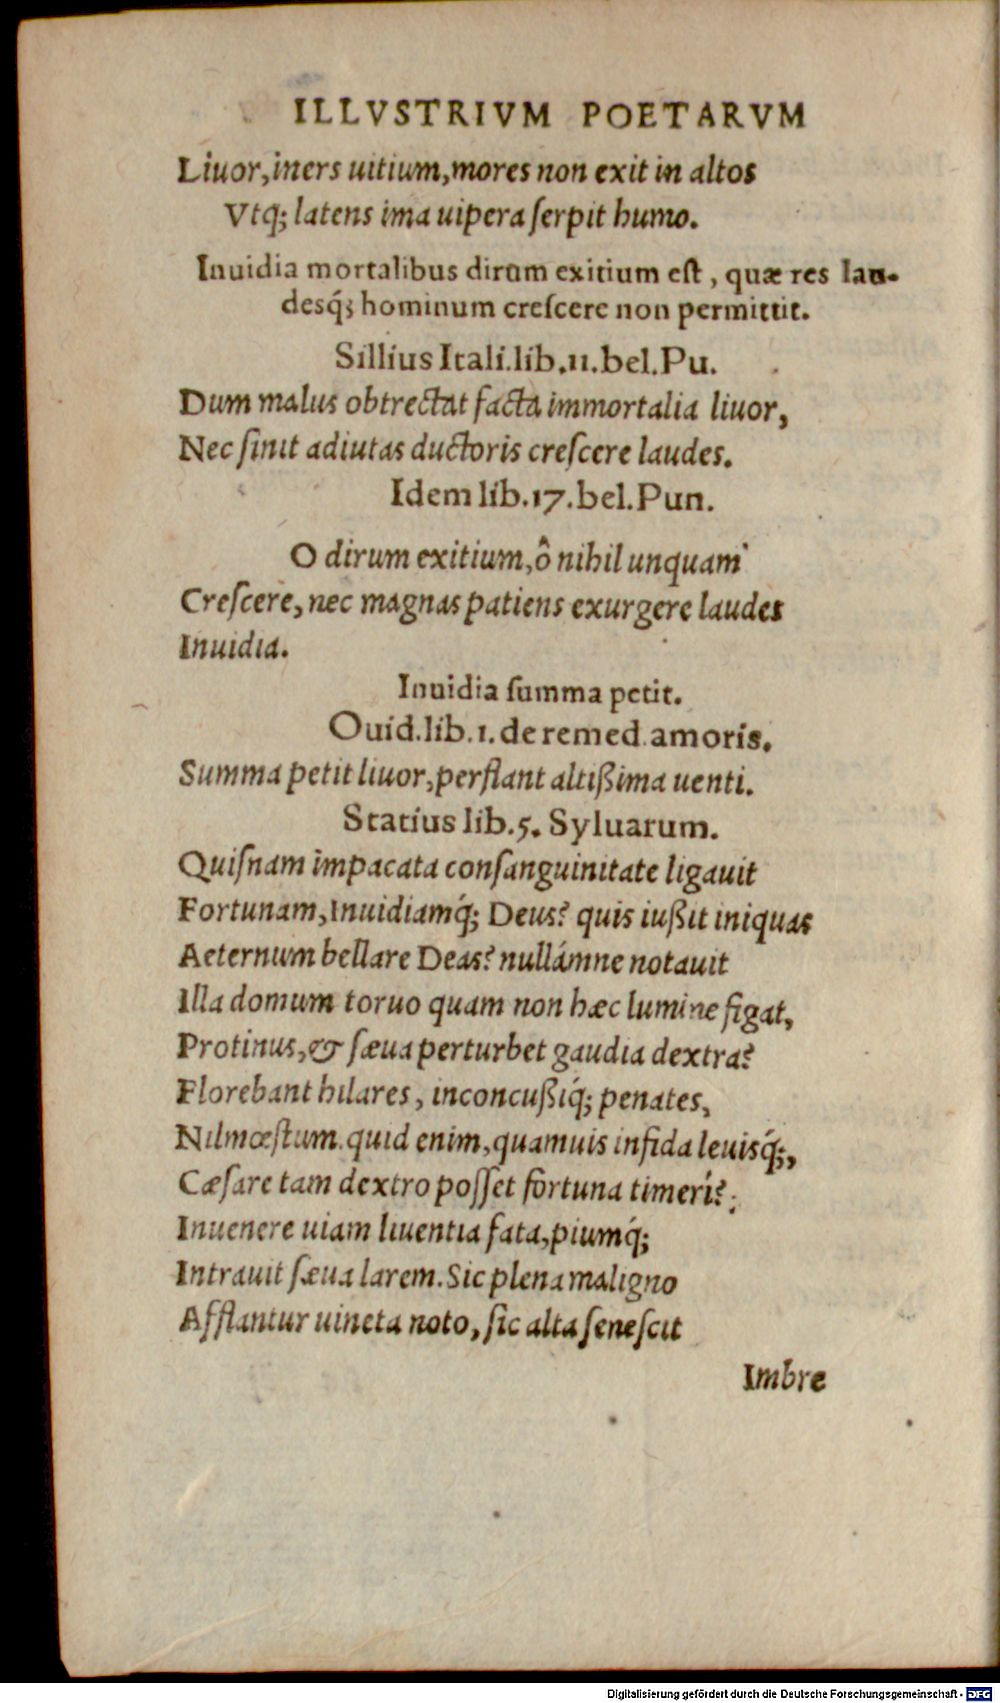 ILLVSTRIVM POETARVM
Liuor, iners uitium, mores non exit in altos
Vtq; latens ima uipera ſerpit humo.
Inuidia mortalibus dirum exitium eſt, quæ res lau-
desq́; hominum creſcere non permittit.
Sillius Itali. lib. 11. bel. Pu.
Dum malus obtrectat facta immortalia liuor,
Nec ſinit adiutas ductoris creſcere laudes.
Idem lib. 17. bel. Pun.
O dirum exitium, ô nihil unquam
Creſcere, nec magnas patiens exurgere laudes
Inuidia.
Inuidia ſumma petit.
Ouid. lib. 1. de remed. amoris.
Summa petit liuor, perflant altißima uenti.
Statius lib. 5. Syluarum.
Quiſnam impacata conſanguinitate ligauit
Fortunam, Inuidiamq́; Deus? quis iußit iniquas
Aeternum bellare Deas? nullámne notauit
Illa domum toruo quam non hæc lumine figat,
Protinus, & ſæua perturbet gaudia dextra?
Florebant hilares, inconcußiq́; penates,
Nil mœſtum. quid enim, quamuis infida leuisq́;,
Cæſare tam dextro poſſet fortuna timeri?
Inuenere uiam liuentia fata, piumq́;
Intrauit ſæua larem. Sic plena maligno
Afflantur uineta noto, ſic alta ſeneſcit
Imbre
Digitalisierung gefördert durch die Deutsche Forschungsgemeinschaft - DFG